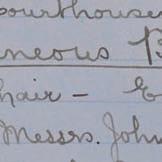 ourthouse
neous B
hair - E
Messrs. John